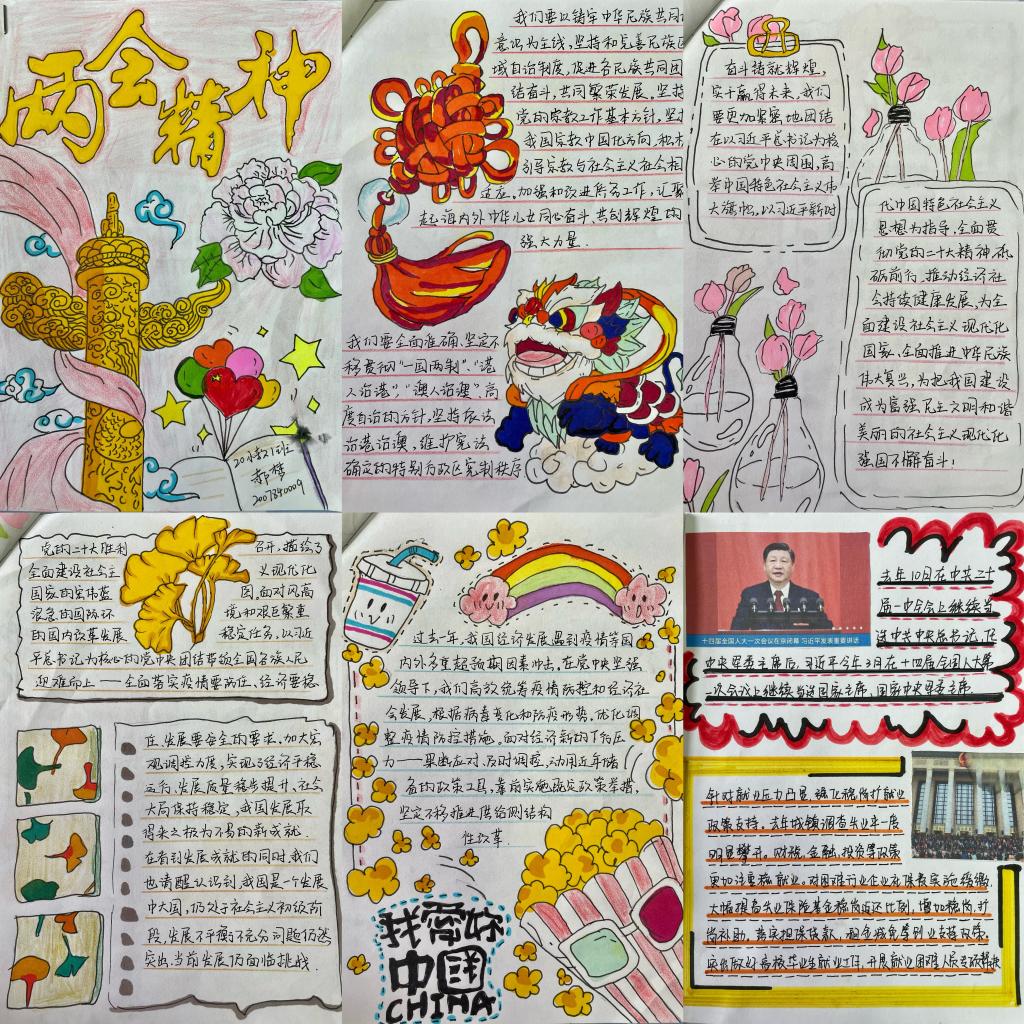 两会精神
20小教1班
郝梦
2007340009
我们要以铸牢中华民族共同
意识为主线,坚持和完善民族区
域自治制度,促进各民族共同团
结奋斗,共同繁荣发展,坚持
党的宗教工作基本方针,坚持
我国宗教中国化方向,积极
引导宗教与社会主义社会相
适应,加强和改进侨务工作,汇聚
起海内外中华儿女同心奋斗,共创辉煌的
强大力量.
我们要全面准确、坚定不
移贯彻“一国两制”、“港
人治港”、“澳人治澳”、高
度自治的方针,坚持依法
治港治澳,维护宪法
确定的特别行政区宪制秩序
奋斗铸就辉煌,
实干赢得未来,我们
要更加紧密地团结
在以习近平总书记为核
心的党中央周围,高
举中国特色社会主义伟
大旗帜,以习近平新时
代中国特色社会主义
思想为指导,全面贯
彻党的二十大精神砥
砺前行,推动经济社
会持续健康发展,为全
面建设社会主义现代化
国家、全面推进中华民族
伟大复兴,为把我国建设
成为富强民主文明和谐
美丽的社会主义现代化
强国不懈奋斗!
党的二十大胜利召开,描绘了
全面建设社会主义现代化
国家的宏伟蓝图,面对风高
浪急的国际环境和艰巨繁重
的国内改革发展稳定任务,以习近
平总书记为核心的党中央团结带领全国各族人民
迎难而上——全面落实疫情要防住、经济要稳
住、发展要安全的要求,加大宏
观调控力度,实现了经济平稳
运行、发展质量稳步提升、社会
大局保持稳定,我国发展取
得来之极为不易的新成就.
在看到发展成就的同时,我们
也清醒认识到,我国是一个发展
中大国,仍处于社会主义初级阶
段,发展不平衡不充分问题仍然
突出.当前发展仍面临挑战.
过去一年,我国经济发展遇到疫情等国
内外多重超预期因素冲击,在党中央坚强
领导下,我们高效统筹疫情防控和经济社
会发展,根据病毒变化和防疫形势,优化调
整疫情防控措施.面对经济新的下行压
力——果断应对、及时调控,动用近年储
备的政策工具,靠前实施既定政策举措,
坚定不移推进供给侧结构
性改革.
我爱你
中国
CHINA
十四届全国人大一次会议在京闭幕 习近平发表重要讲话
去年10月在中共二十
届一中全会上继续当
选中共中央总书记、任
中央军委主席后,习近平今年3月在十四届全国人大第
一次会议上继续当选国家主席、国家中央军委主席
针对就业压力凸显,强化稳岗扩就业
政策支持,去年城镇调查失业率一度
明显攀升.财税、金融、投资等政策
更加注重稳就业,对困难行业企业社保费实施缓缴,
大幅提高失业保险基金稳岗返还比例,增加稳岗扩
岗补助,落实担保贷款、租金减免等创业支持政策.
突出做好高校毕业生就业工作,开展就业困难人员专项帮扶